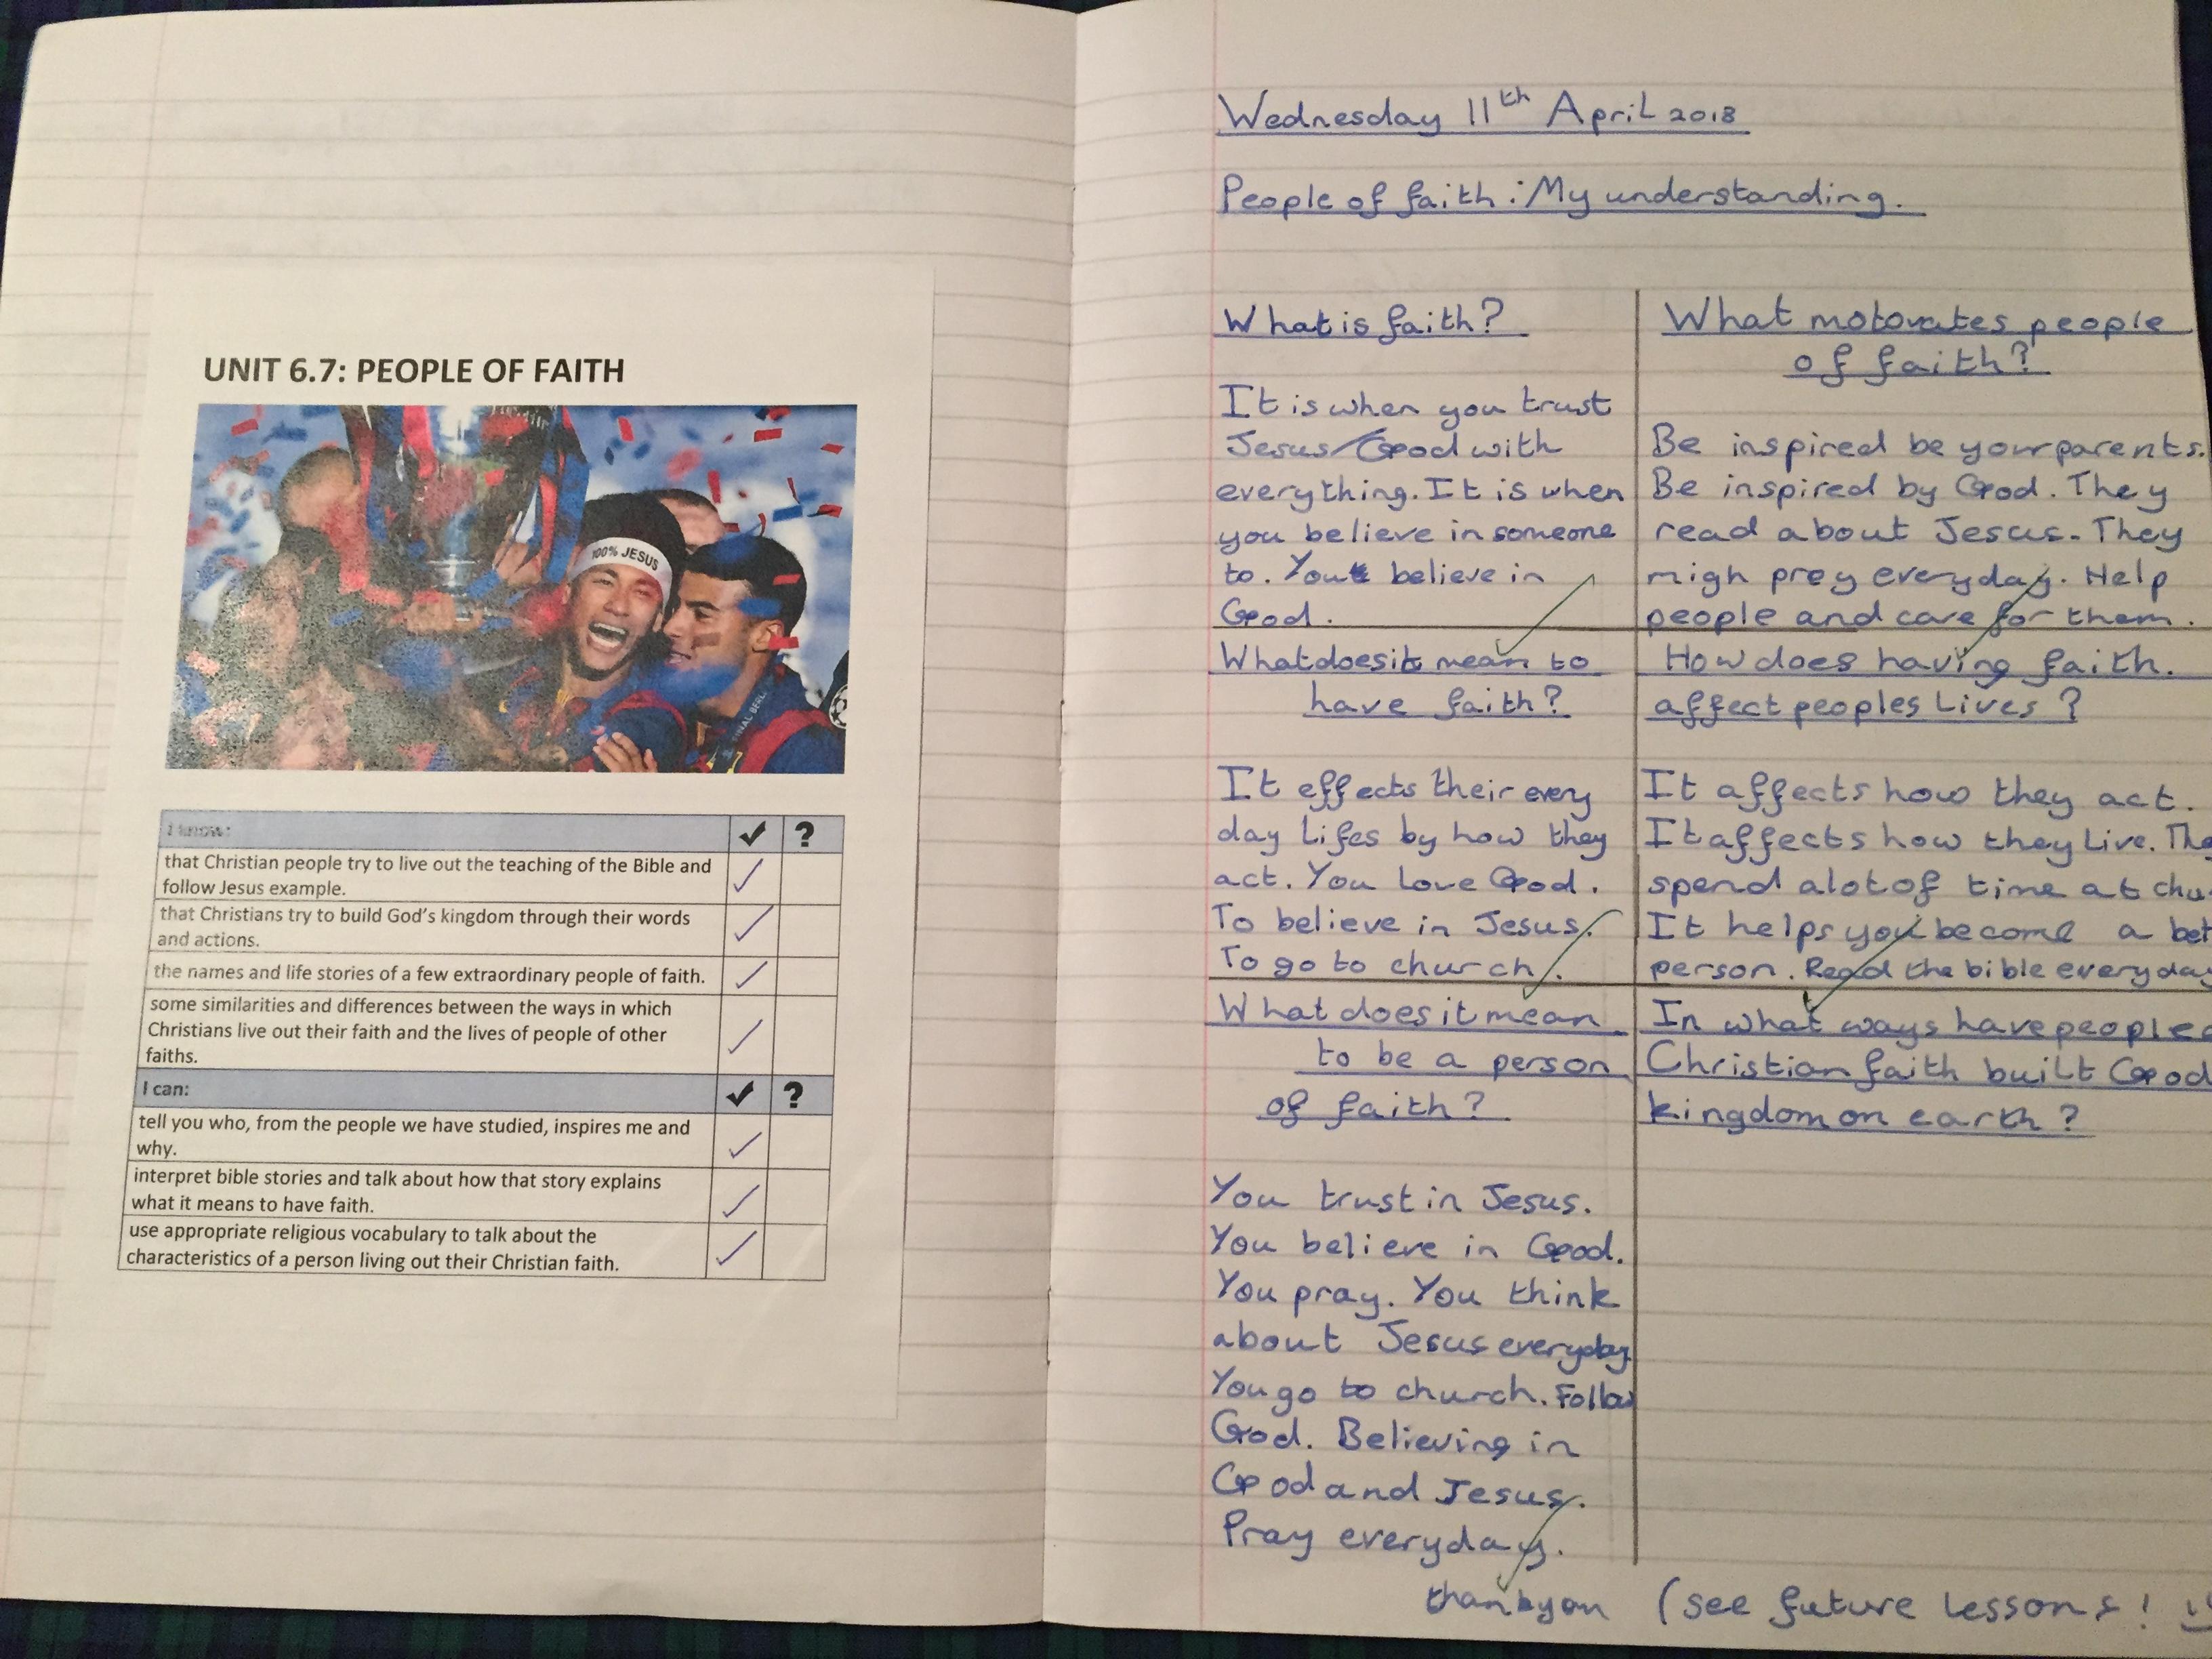 UNIT 6.7: PEOPLE OF FAITH
100% JESUS
FINAL BERL
I know:
✓ ?
that Christian people try to live out the teaching of the Bible and
follow Jesus example.
that Christians try to build God's kingdom through their words
and actions.
the names and life stories of a few extraordinary people of faith.
some similarities and differences between the ways in which
Christians live out their faith and the lives of people of other
faiths.
I can:
✓ ?
tell you who, from the people we have studied, inspires me and
why.
interpret bible stories and talk about how that story explains
what it means to have faith.
use appropriate religious vocabulary to talk about the
characteristics of a person living out their Christian faith.
Wednesday 11th April 2018
People of faith : My understanding.
What is faith?
It is when you trust
Jesus/God with
everything. It is when
you believe in someone
to. You believe in
God.
What motovates people
of faith?
Be inspired be your parents.
Be inspired by God. They
read about Jesus. They
migh prey everyday. Help
people and care for them.
What does it mean to
have faith?
It effects their every
day lifes by how they
act. You love God.
To believe in Jesus.
To go to church.
How does having faith.
affect peoples lives?
It affects how they act.
It affects how they live. The
spend alot of time at chu
It helps you become a bet
person. Read the bible everyday
What does it mean
to be a person
of faith?
You trust in Jesus.
You believe in God.
You pray. You think
about Jesus everyday.
You go to church. Follow
God. Believing in
God and Jesus.
Pray everyday.
In what ways have people
Christian faith built God
kingdom on earth?
thankyou (see future lessons!